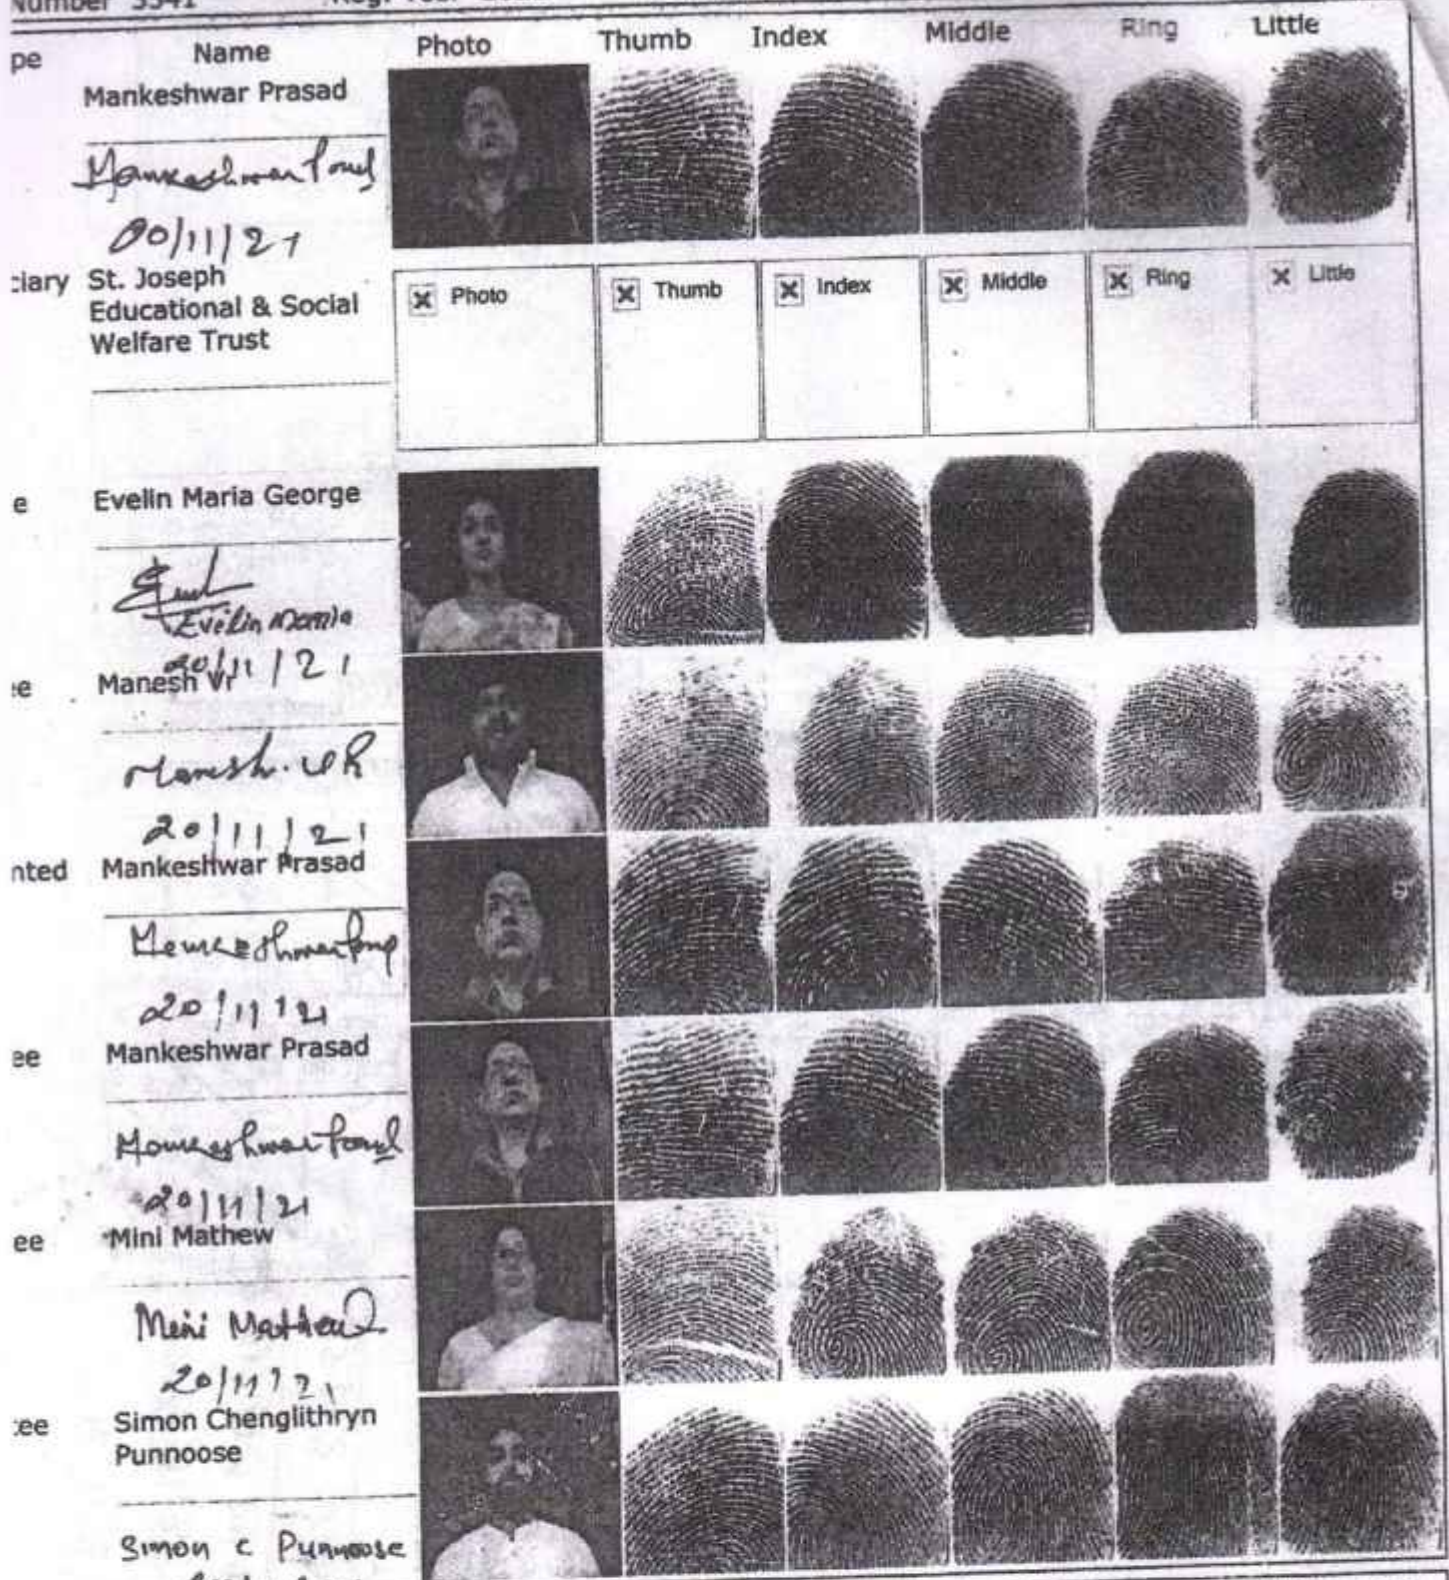 Number 3541
pe Name Photo Thumb Index Middle Ring Little
Mankeshwar Prasad
00/11/21
ciary St. Joseph
Educational & Social
Welfare Trust
Photo Thumb Index Middle Ring Little
e Evelin Maria George
Evelin Maria
20/11/21
ee Manesh Vr
Manesh. V R
20/11/21
nted Mankeshwar Prasad
20/11/21
ee Mankeshwar Prasad
20/11/21
ee Mini Mathew
Mini Mathew
20/11/21
tee Simon Chenglithryn
Punnoose
Simon C Punnoose